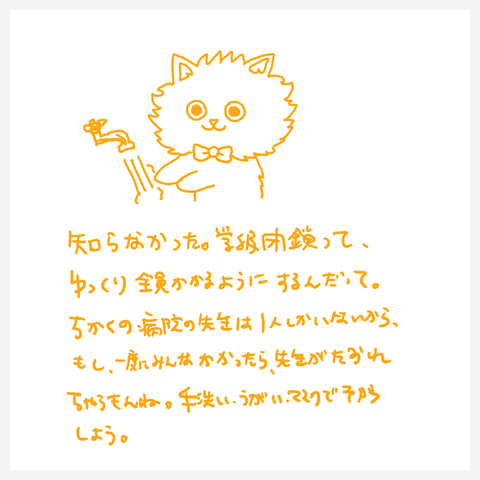 知らなかった。学級閉鎖って、
ゆっくり全員かかるようにするんだって。
ちかくの病院の先生は1人しかいないから、
もし、一度にみんなかかったら、先生がたおれ
ちゃうもんね。手洗い・うがい・マスクで予防
しよう。